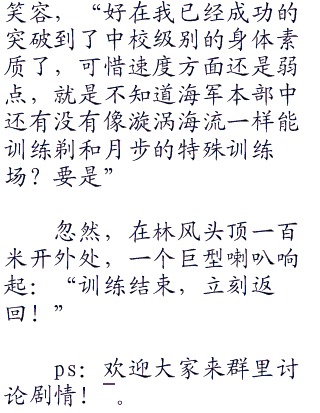 笑容，“好在我已经成功的
突破到了中校级别的身体素
质了，可惜速度方面还是弱
点，就是不知道海军本部中
还有没有像漩涡海流一样能
训练剃和月步的特殊训练
场？要是”
忽然，在林风头顶一百
米开外处，一个巨型喇叭响
起：“训练结束，立刻返
回！”
ps：欢迎大家来群里讨
论剧情！_。